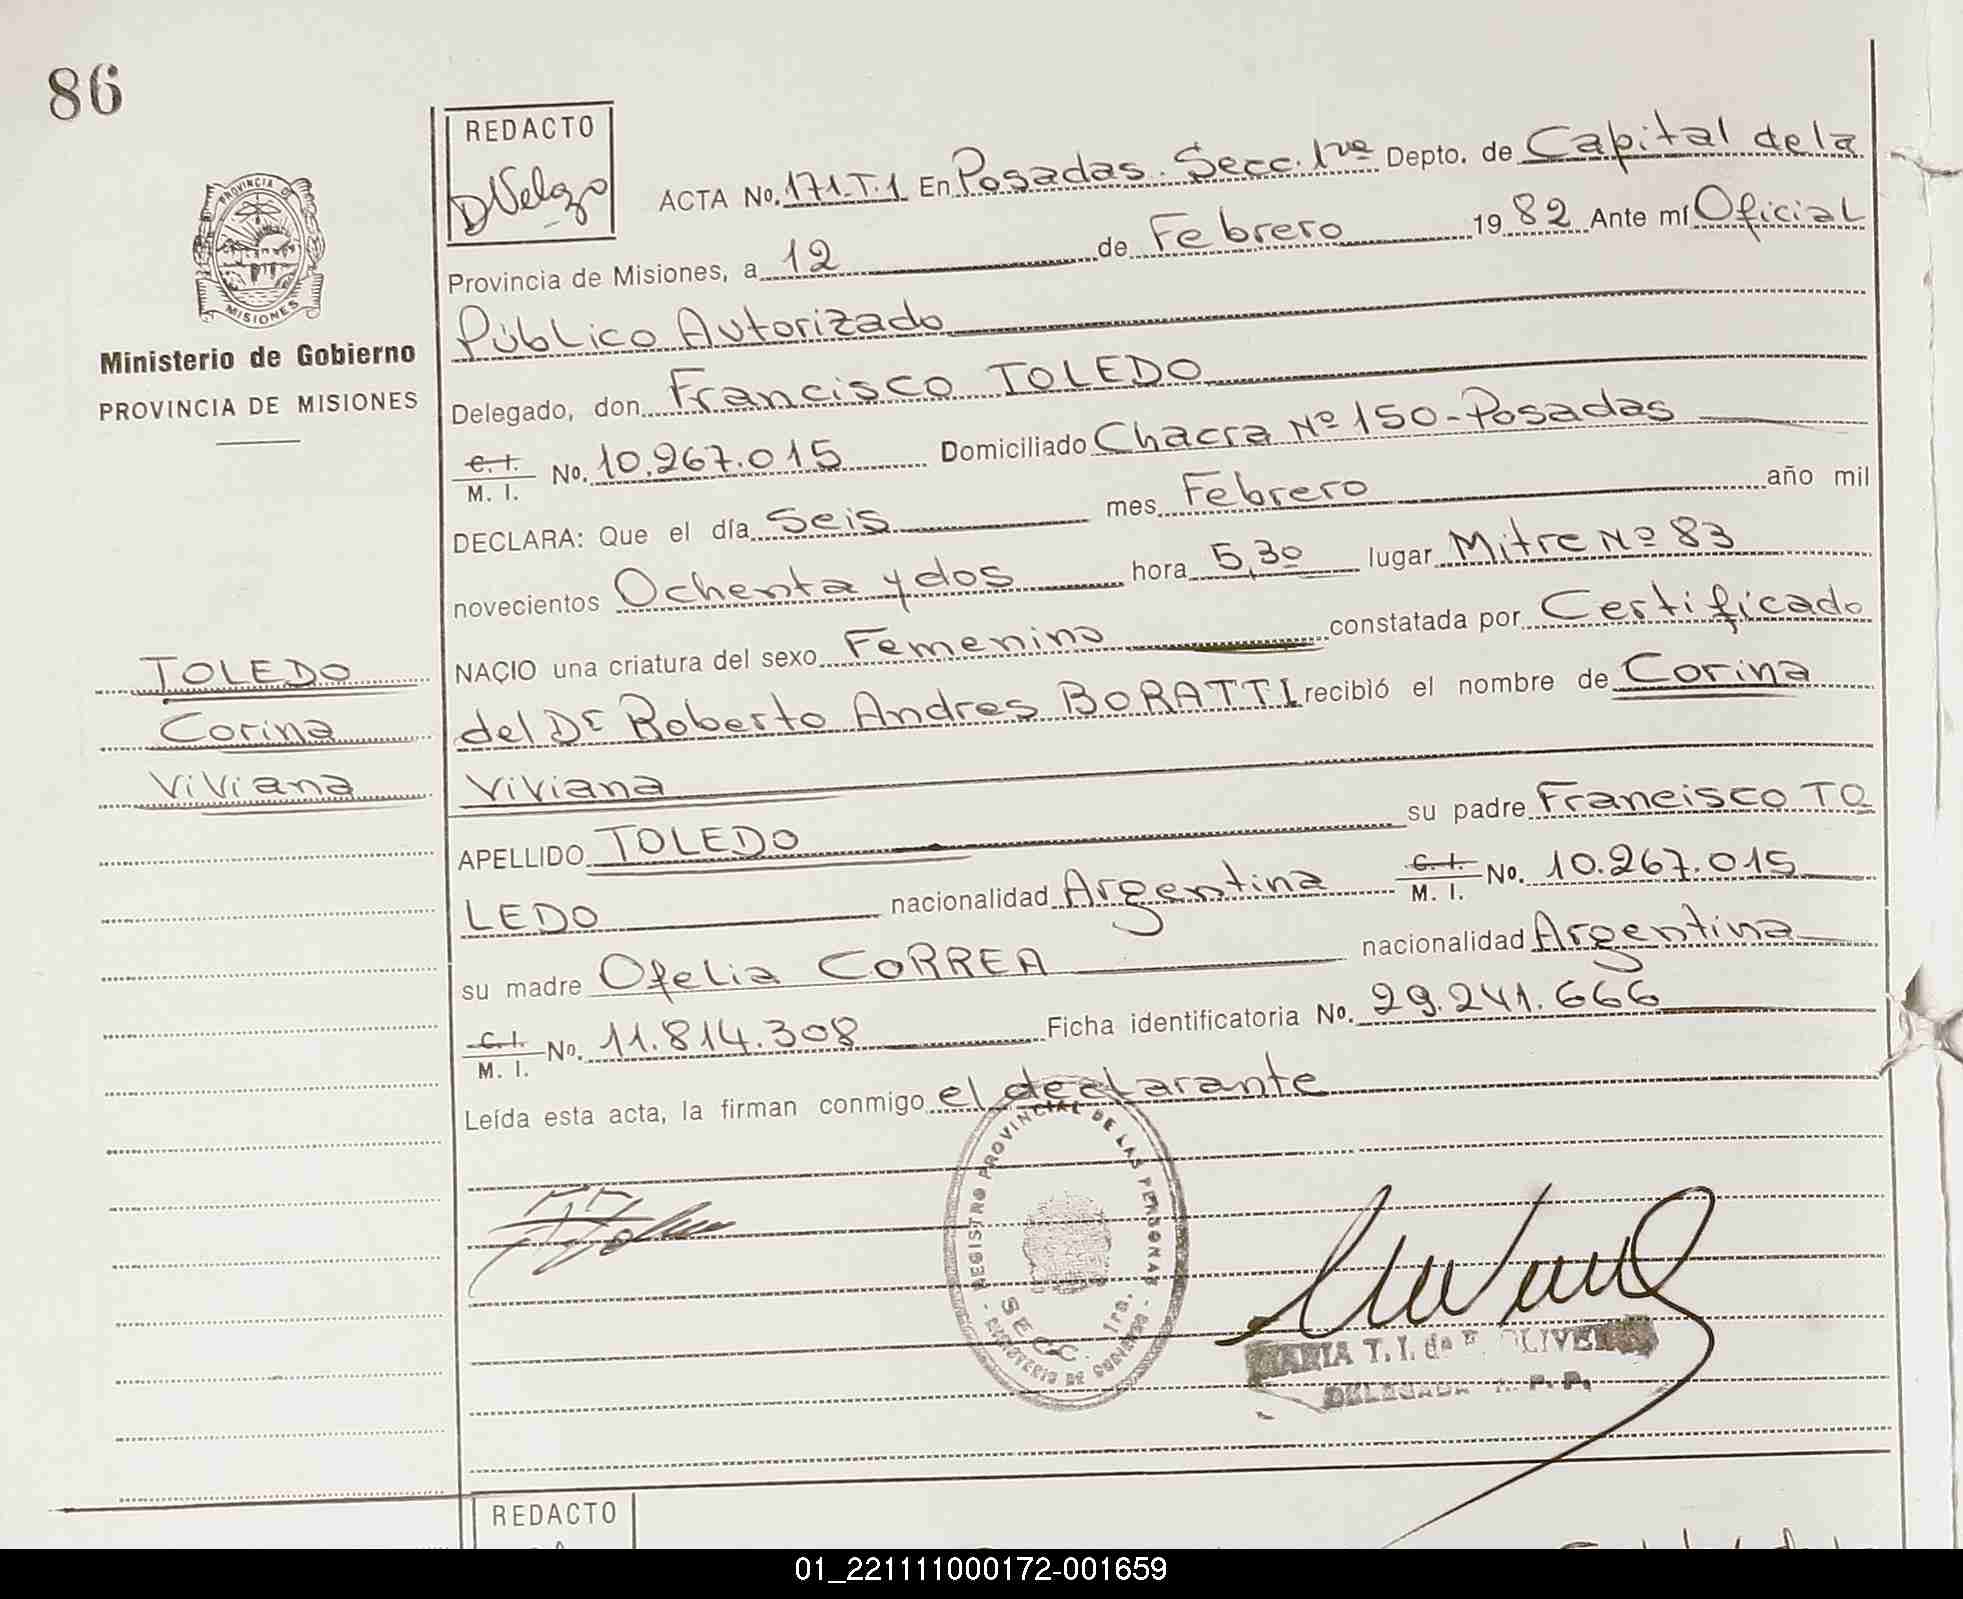 86
REDACTO
DVelazo
ACTA No. 171.T.1 En Posadas. Secc. 1ra Depto. de Capital de la
Provincia de Misiones, a 12 de Febrero 1982 Ante mí Oficial
Público Autorizado
Delegado, don Francisco TOLEDO
C. I. / M. I. No. 10.267.015 Domiciliado Chacra Nº 150-Posadas
DECLARA: Que el día Seis mes Febrero año mil
novecientos Ochenta y dos hora 5,30 lugar Mitre Nº 83
NACIO una criatura del sexo Femenino constatada por Certificado
del Dr Roberto Andres BORATTI recibió el nombre de Corina
Viviana
APELLIDO TOLEDO su padre Francisco TO
LEDO nacionalidad Argentina C. I. / M. I. No. 10.267.015
su madre Ofelia CORREA nacionalidad Argentina
C. I. / M. I. No. 11.814.308 Ficha identificatoria No. 29.241.666
Leída esta acta, la firman conmigo el declarante
PROVINCIA DE
MISIONES
Ministerio de Gobierno
PROVINCIA DE MISIONES
TOLEDO
Corina
Viviana
REGISTRO PROVINCIAL DE LAS PERSONAS
SECC. 1ra.
MINISTERIO DE GOBIERNO
MARIA T. I. de
DELEGADA
REDACTO
01_221111000172-001659